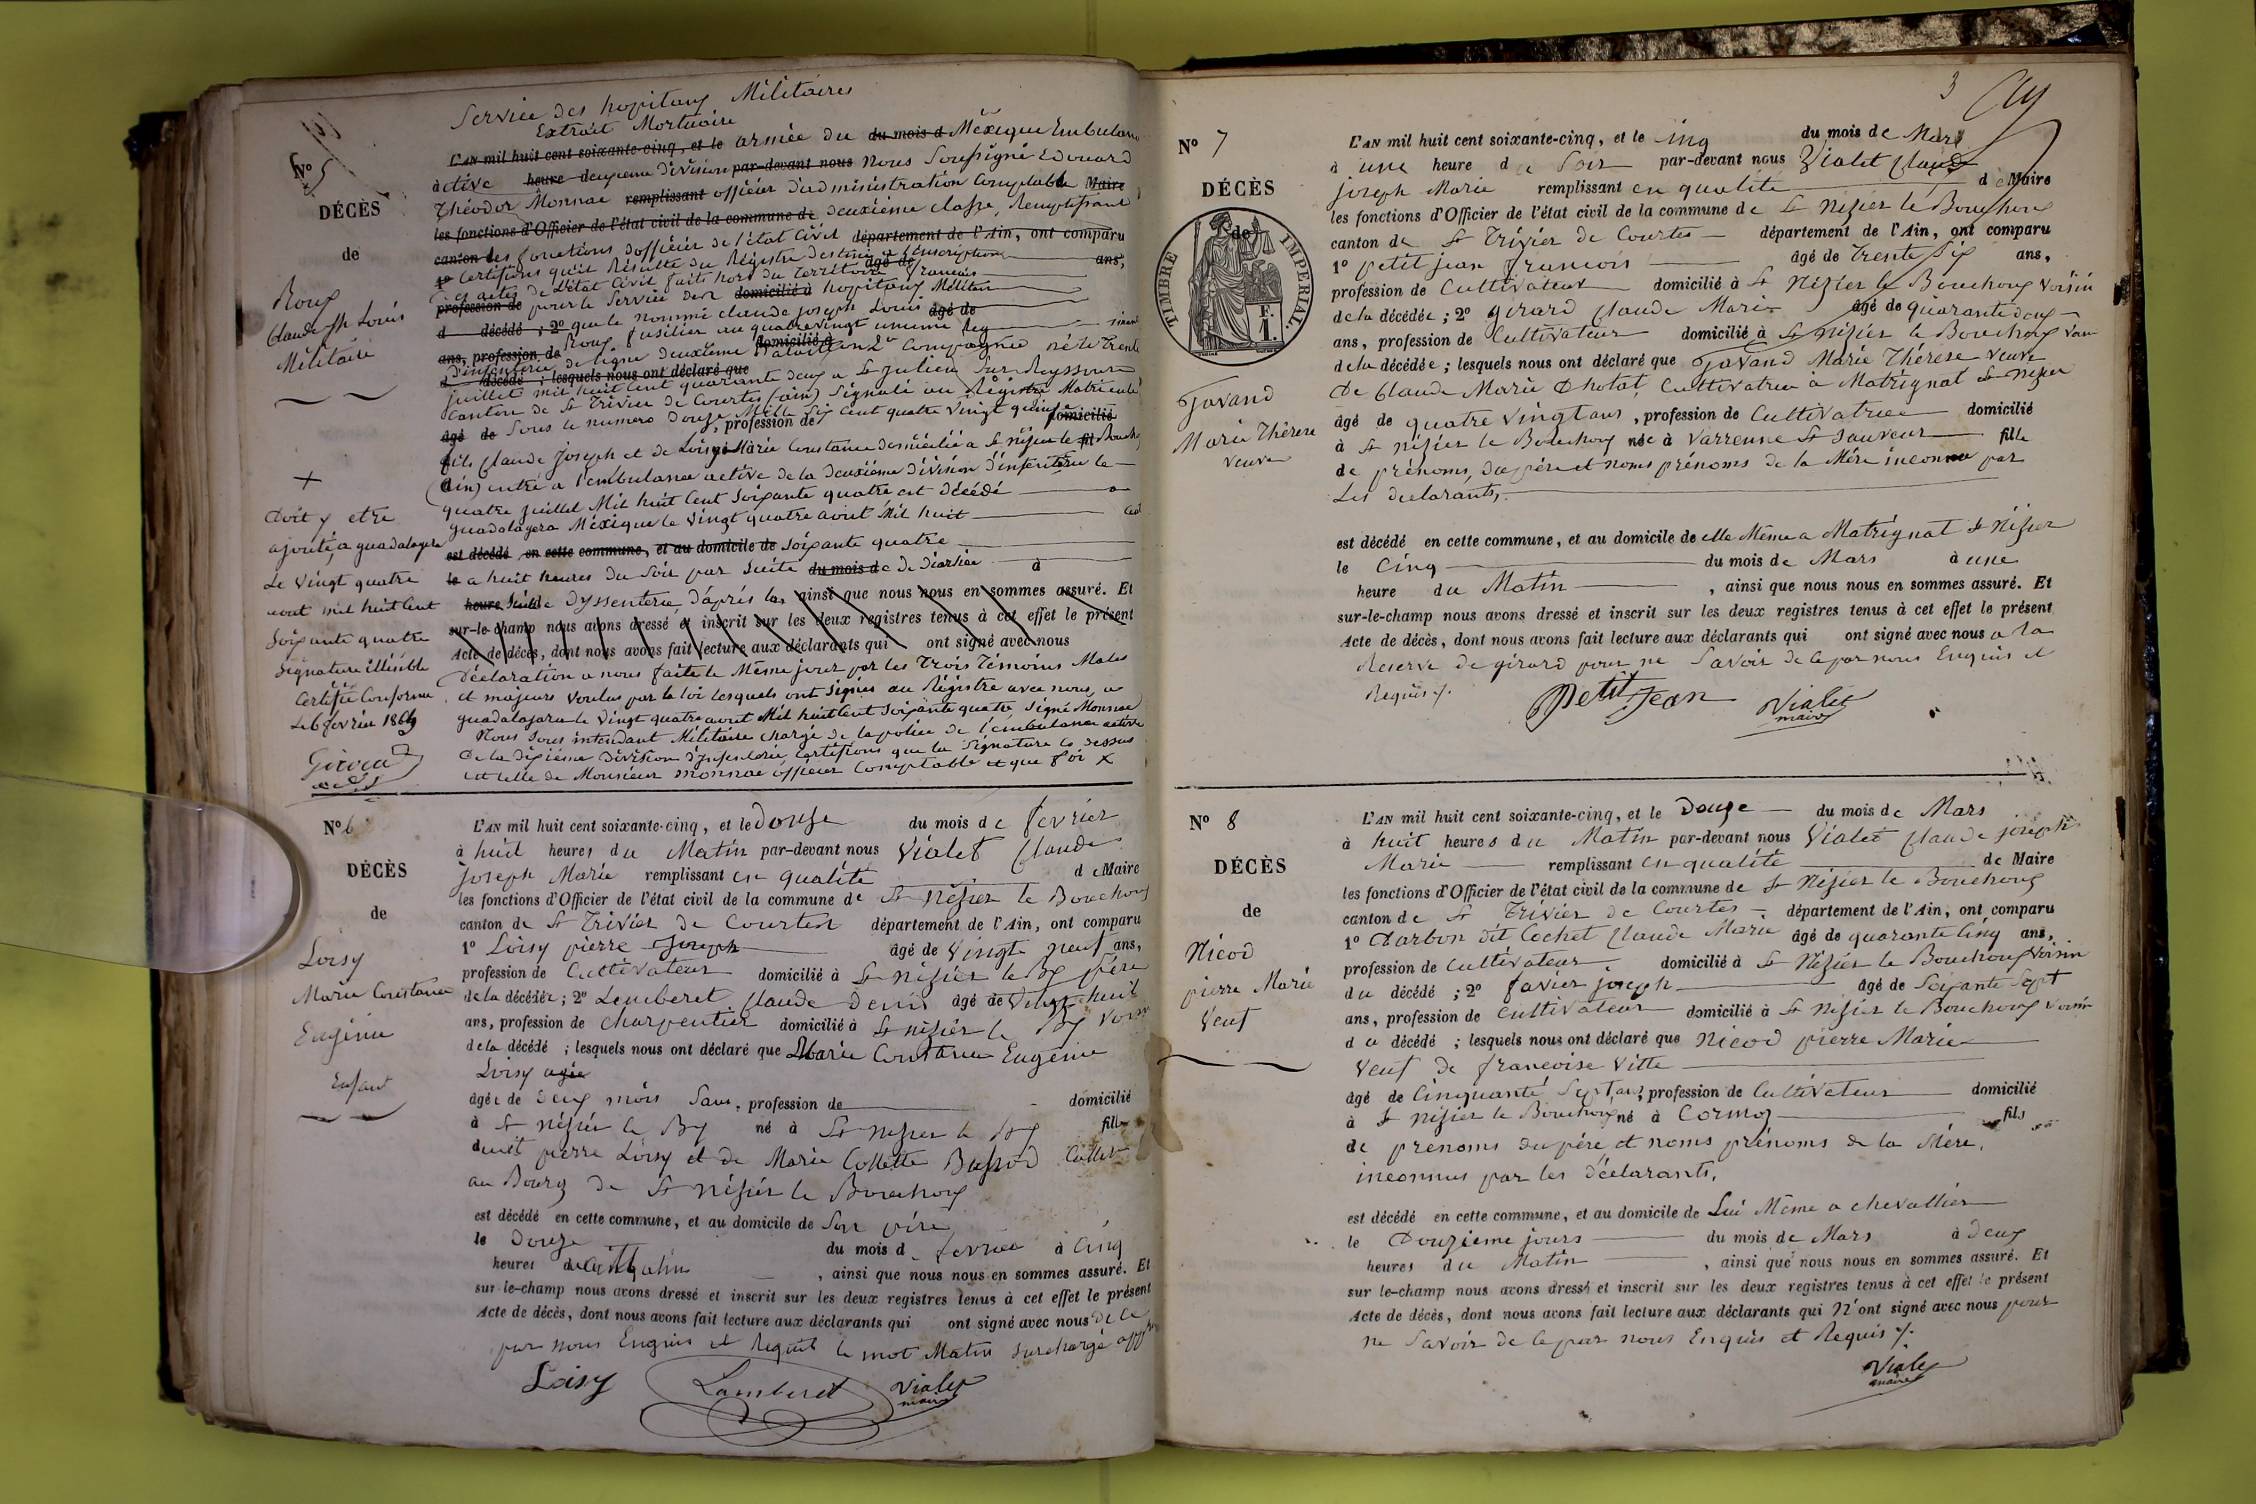 Service des hopitaux Militaires
Extrait Mortuaire
No 5
DÉCÈS
de
Roux
Claude Jh Louis
Militaire
L'AN mil huit cent soixante-cinq, et le armée du du mois d Méxique Embulance
active heure deuxieme division par-devant nous Nous Soussigné Edouard
Théodor Monnae remplissant officier d'administration Comptable Maire
les fonctions d'Officier de l'état civil de la commune de deuxième classe, Remplissant
canton des fonctions d'officier de l'état Civil département de l'Ain, ont comparu
1o Certifions qu'il Résulte du Régistre destiné a l'inscription âgé de ans,
des actes de l'état Civil faits hors du Territoire francais
profession de pour le Service des domicilié à hopitaux Militaires
d décédé ; 2o que le nommé claude joseph Louis âgé de
ans, profession de Roux fusilier au quatrevingt unieme Reg
d'infenterie de ligne deuxième domicilié à Bataillon 2e Compagnie né le Trente
d décédé ; lesquels nous ont déclaré que
juillet mil huit cent quarante deux a St julien Sur Reyssouze
Canton de St Trivier de Courtes (ain) Signalé au Régistre Matricule
âgé de Sous le numero Douze Mille Six Cent quatre vingt quinze, profession de domicilié
fils Claude Joseph et de Loisy Marie Constance domiciliée a St nizier le fil Bouchoux
(ain) entré a l'embulance active de la deuxième division d'infenterie le
quatre juillet Mil huit Cent Soixante quatre est décédé a
guadalagera Méxique le vingt quatre aout Mil huit Cent
est décédé en cette commune, et au domicile de Soixante quatre
le a huit heures du Soir par Suite du mois de de Diarhée à
heure Suite de Dyssenterie, d'aprés la ainsi que nous nous en sommes assuré. Et
sur-le-champ nous avons dressé et inscrit sur les deux registres tenus à cet effet le présent
Acte de décès, dont nous avons fait lecture aux déclarants qui ont signé avec nous
Déclaration a nous faite le Même jour par les Trois Témoins Males
et majeurs voulus par la loi lesquels ont Signés au Régistre avec nous, a
guadalajara le vingt quatre aout Mil huit Cent Soixante quatre Signé Monnae
Nous Sous intendant Militaire chargé de la police de l'embulance active
de la dixième Division d'infenterie, Certifions que la Signature Ci dessus
est celle de Monsieur monnae officier Comptable et que foi X
+
Doit y etre
ajouté, a guadalagera
Le Vingt quatre
aout mil huit Cent
Soixante quatre
Signature illésible
Certifié Conforme
Le 6 fevrier 186
No 6
DÉCÈS
de
Loisy
Marie Constance
Eugénie
Enfant
L'AN mil huit cent soixante-cinq, et le Douze du mois de fevrier
à huit heures du Matin par-devant nous Vialet Claude
joseph Marie remplissant en qualité de Maire
les fonctions d'Officier de l'état civil de la commune de St Nizier le Bouchoux
canton de St Trivier de Courtes département de l'Ain, ont comparu
1o Loisy pierre Joseph âgé de Vingt neuf ans,
profession de Cultivateur domicilié à St nizier le Bx père
de la décédée ; 2o Lemberet Claude Denis âgé de Vingt huit
ans, profession de charpentier domicilié à St nizier le Bx voisin
de la décédé ; lesquels nous ont déclaré que Marie Constance Eugénie
Loisy agée
âgée de deux mois Sans, profession de domicilié
à St nizier le Bx né à St nizier le Bx fille
dudit pierre Loisy et de Marie Collette Bussod Cultiv
au Bourg de St nizier le Bouchoux
est décédé en cette commune, et au domicile de Son père
le Douze du mois d fevrier à Cinq
heures du Matin, ainsi que nous nous en sommes assuré. Et
sur-le-champ nous avons dressé et inscrit sur les deux registres tenus à cet effet le présent
Acte de décès, dont nous avons fait lecture aux déclarants qui ont signé avec nous de ce
par nous Enquis et Requis le mot Matin Surchargé app
Loisy Lamberet Vialet
maire
3
No 7
DÉCÈS
de
TIMBRE IMPERIAL.
1 F.
Gavand
Marie Thérèse
veuve
L'AN mil huit cent soixante-cinq, et le cinq du mois de Mars
à une heure du Soir par-devant nous Vialet Claude
joseph Marie remplissant en qualité de Maire
les fonctions d'Officier de l'état civil de la commune de St Nizier le Bouchoux
canton de St Trivier de Courtes département de l'Ain, ont comparu
1o petit jean francois âgé de Trente Six ans,
profession de Cultivateur domicilié à St Nizier le Bouchoux voisin
de la décédée ; 2o girard Claude Marie âgé de quarante deux
ans, profession de Cultivateur domicilié à St nizier le Bouchoux
de la décédée ; lesquels nous ont déclaré que Gavand Marie Thérèse veuve
de Claude Marie Chotat, Cultivatrice à Matrignat St Nizier
âgé de quatre vingt ans, profession de Cultivatrice domicilié
à St nizier le Bouchoux née à Varrenne St Sauveur fille
de prénoms du père et noms prénoms de la Mère inconnu par
Les declarants,
est décédé en cette commune, et au domicile de elle Même a Matrignat St Nizier
le Cinq du mois de Mars à une
heure du Matin, ainsi que nous nous en sommes assuré. Et
sur-le-champ nous avons dressé et inscrit sur les deux registres tenus à cet effet le présent
Acte de décès, dont nous avons fait lecture aux déclarants qui ont signé avec nous a la
Reserve de girard pour ne Savoir de ce par nous Enquis et
Requis ./.
Petitjean Vialet
maire
No 8
DÉCÈS
de
Nicod
pierre Marie
Veuf
L'AN mil huit cent soixante-cinq, et le Douze du mois de Mars
à huit heures du Matin par-devant nous Vialet Claude joseph
Marie remplissant en qualité de Maire
les fonctions d'Officier de l'état civil de la commune de St Nizier le Bouchoux
canton de St Trivier de Courtes département de l'Ain, ont comparu
1o Darbon dit Cochet Claude Marie âgé de quarante Cinq ans,
profession de Cultivateur domicilié à St Nizier le Bouchoux Voisin
du décédé ; 2o favier joseph âgé de Soixante Sept
ans, profession de Cultivateur domicilié à St Nizier le Bouchoux voisin
du décédé ; lesquels nous ont déclaré que Nicod pierre Marie
Veuf de francoise Vitte
âgé de Cinquante Sept ans, profession de Cultivateur domicilié
à St Nizier le Bouchoux né à Cormoz fils
de prenoms du père et noms prénoms de la Mère,
inconnus par les déclarants,
est décédé en cette commune, et au domicile de Lui Même a chevallier
le Douzieme jours du mois de Mars à deux
heures du Matin, ainsi que nous nous en sommes assuré. Et
sur le-champ nous avons dressé et inscrit sur les deux registres tenus à cet effet le présent
Acte de décès, dont nous avons fait lecture aux déclarants qui N'ont signé avec nous pour
ne Savoir de ce par nous Enquis et Requis ./.
Vialet
maire